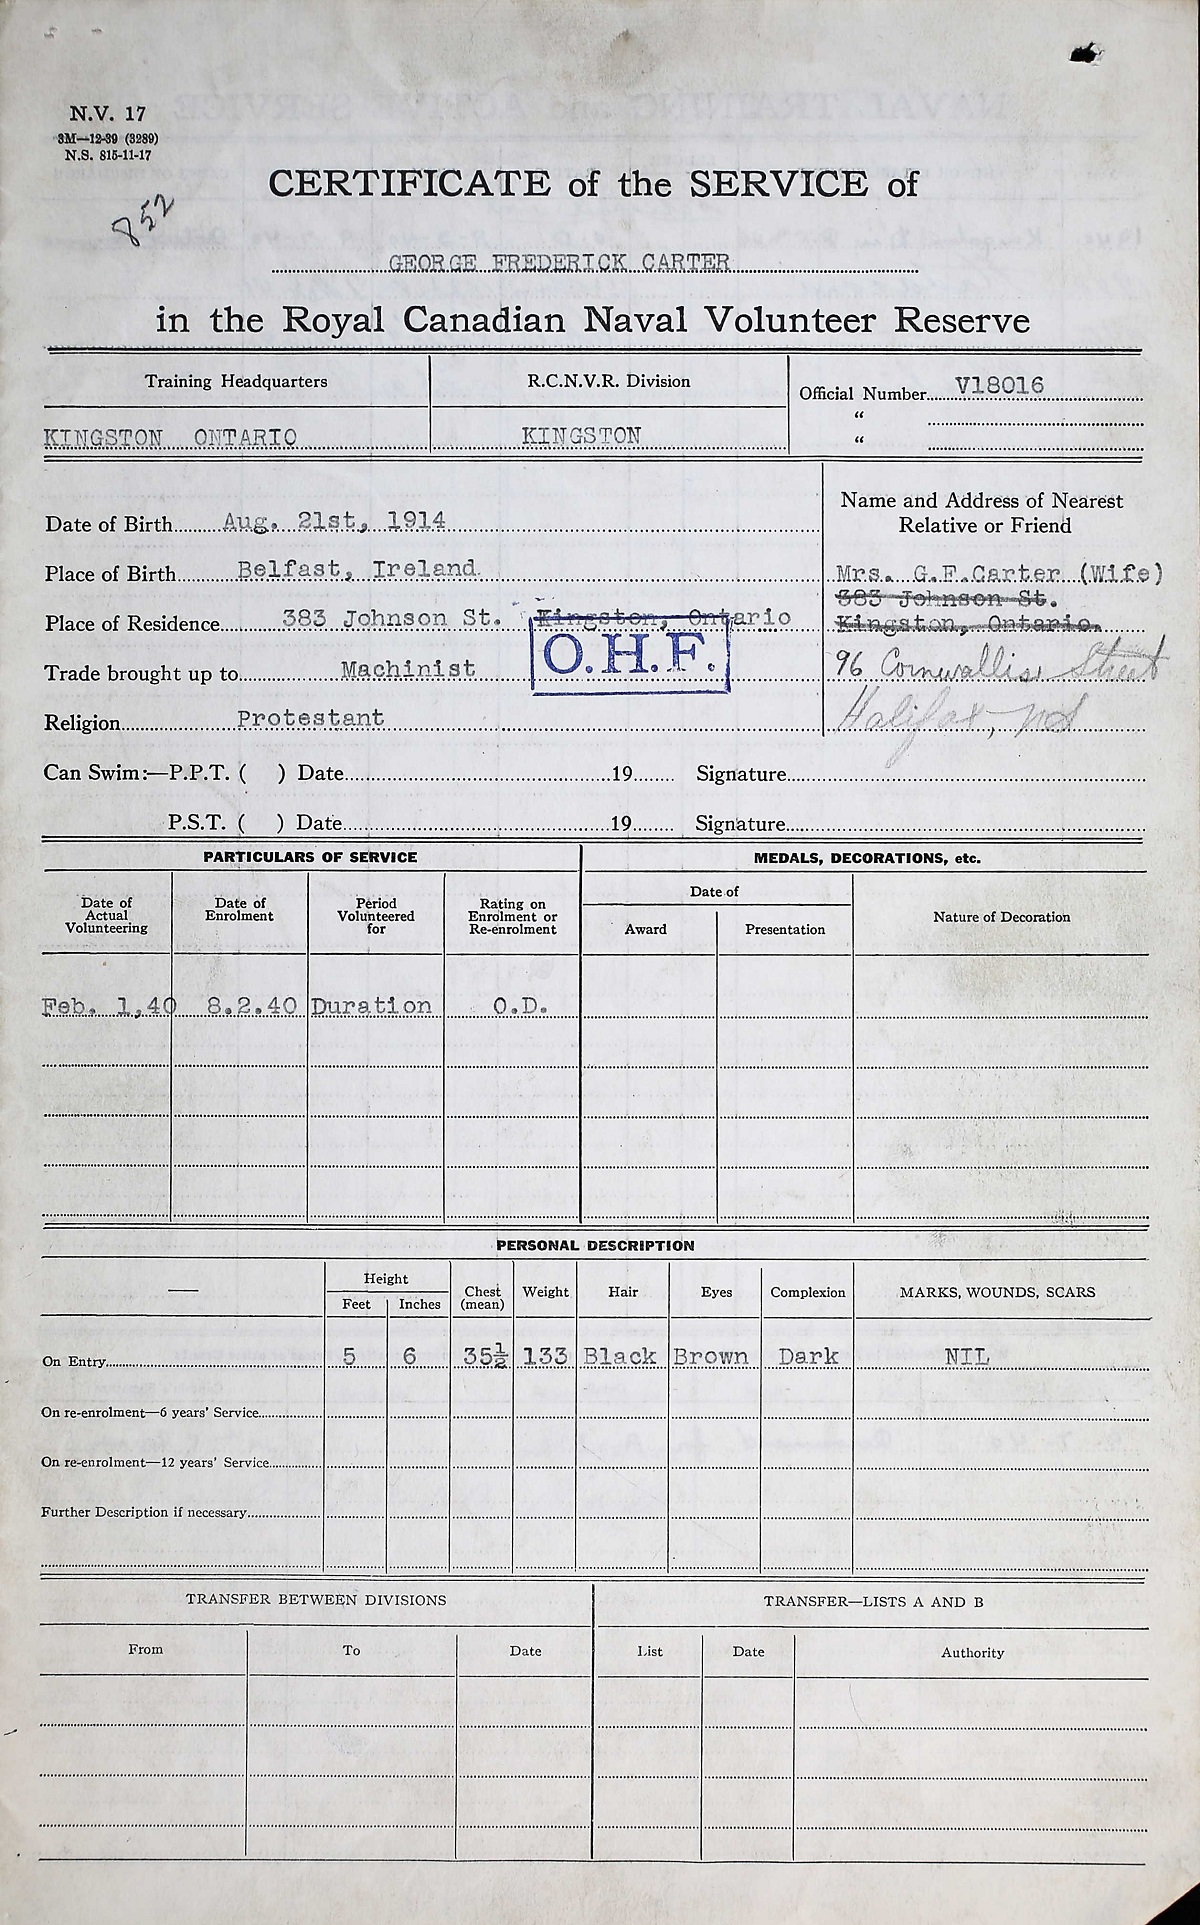 N.V. 17
3M—12-39 (3289)
N.S. 815-11-17
852
CERTIFICATE of the SERVICE of
GEORGE FREDERICK CARTER
in the Royal Canadian Naval Volunteer Reserve
Training Headquarters R.C.N.V.R. Division Official Number V18016
“
KINGSTON ONTARIO KINGSTON “
Name and Address of Nearest
Relative or Friend
Date of Birth Aug. 21st, 1914
Place of Birth Belfast, Ireland Mrs. G.F.Carter (Wife)
383 Johnson St.
Place of Residence 383 Johnson St. Kingston, Ontario Kingston, Ontario.
O.H.F.
Trade brought up to Machinist 96 Cornwallis Street
Religion Protestant Halifax, NS
Can Swim:—P.P.T. ( ) Date 19 Signature
P.S.T. ( ) Date 19 Signature
PARTICULARS OF SERVICE MEDALS, DECORATIONS, etc.
Date of Actual Volunteering Date of Enrolment Period Volunteered for Rating on Enrolment or Re-enrolment Date of Nature of Decoration
Award Presentation
Feb. 1,40 8.2.40 Duration O.D.
PERSONAL DESCRIPTION
— Height Chest (mean) Weight Hair Eyes Complexion MARKS, WOUNDS, SCARS
Feet Inches
On Entry 5 6 35½ 133 Black Brown Dark NIL
On re-enrolment—6 years' Service
On re-enrolment—12 years' Service
Further Description if necessary
TRANSFER BETWEEN DIVISIONS TRANSFER—LISTS A AND B
From To Date List Date Authority